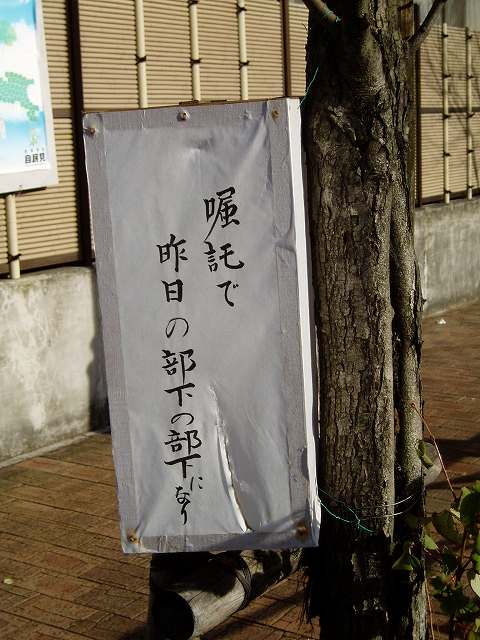 嘱託で
昨日の部下の部下になり
自誠晃